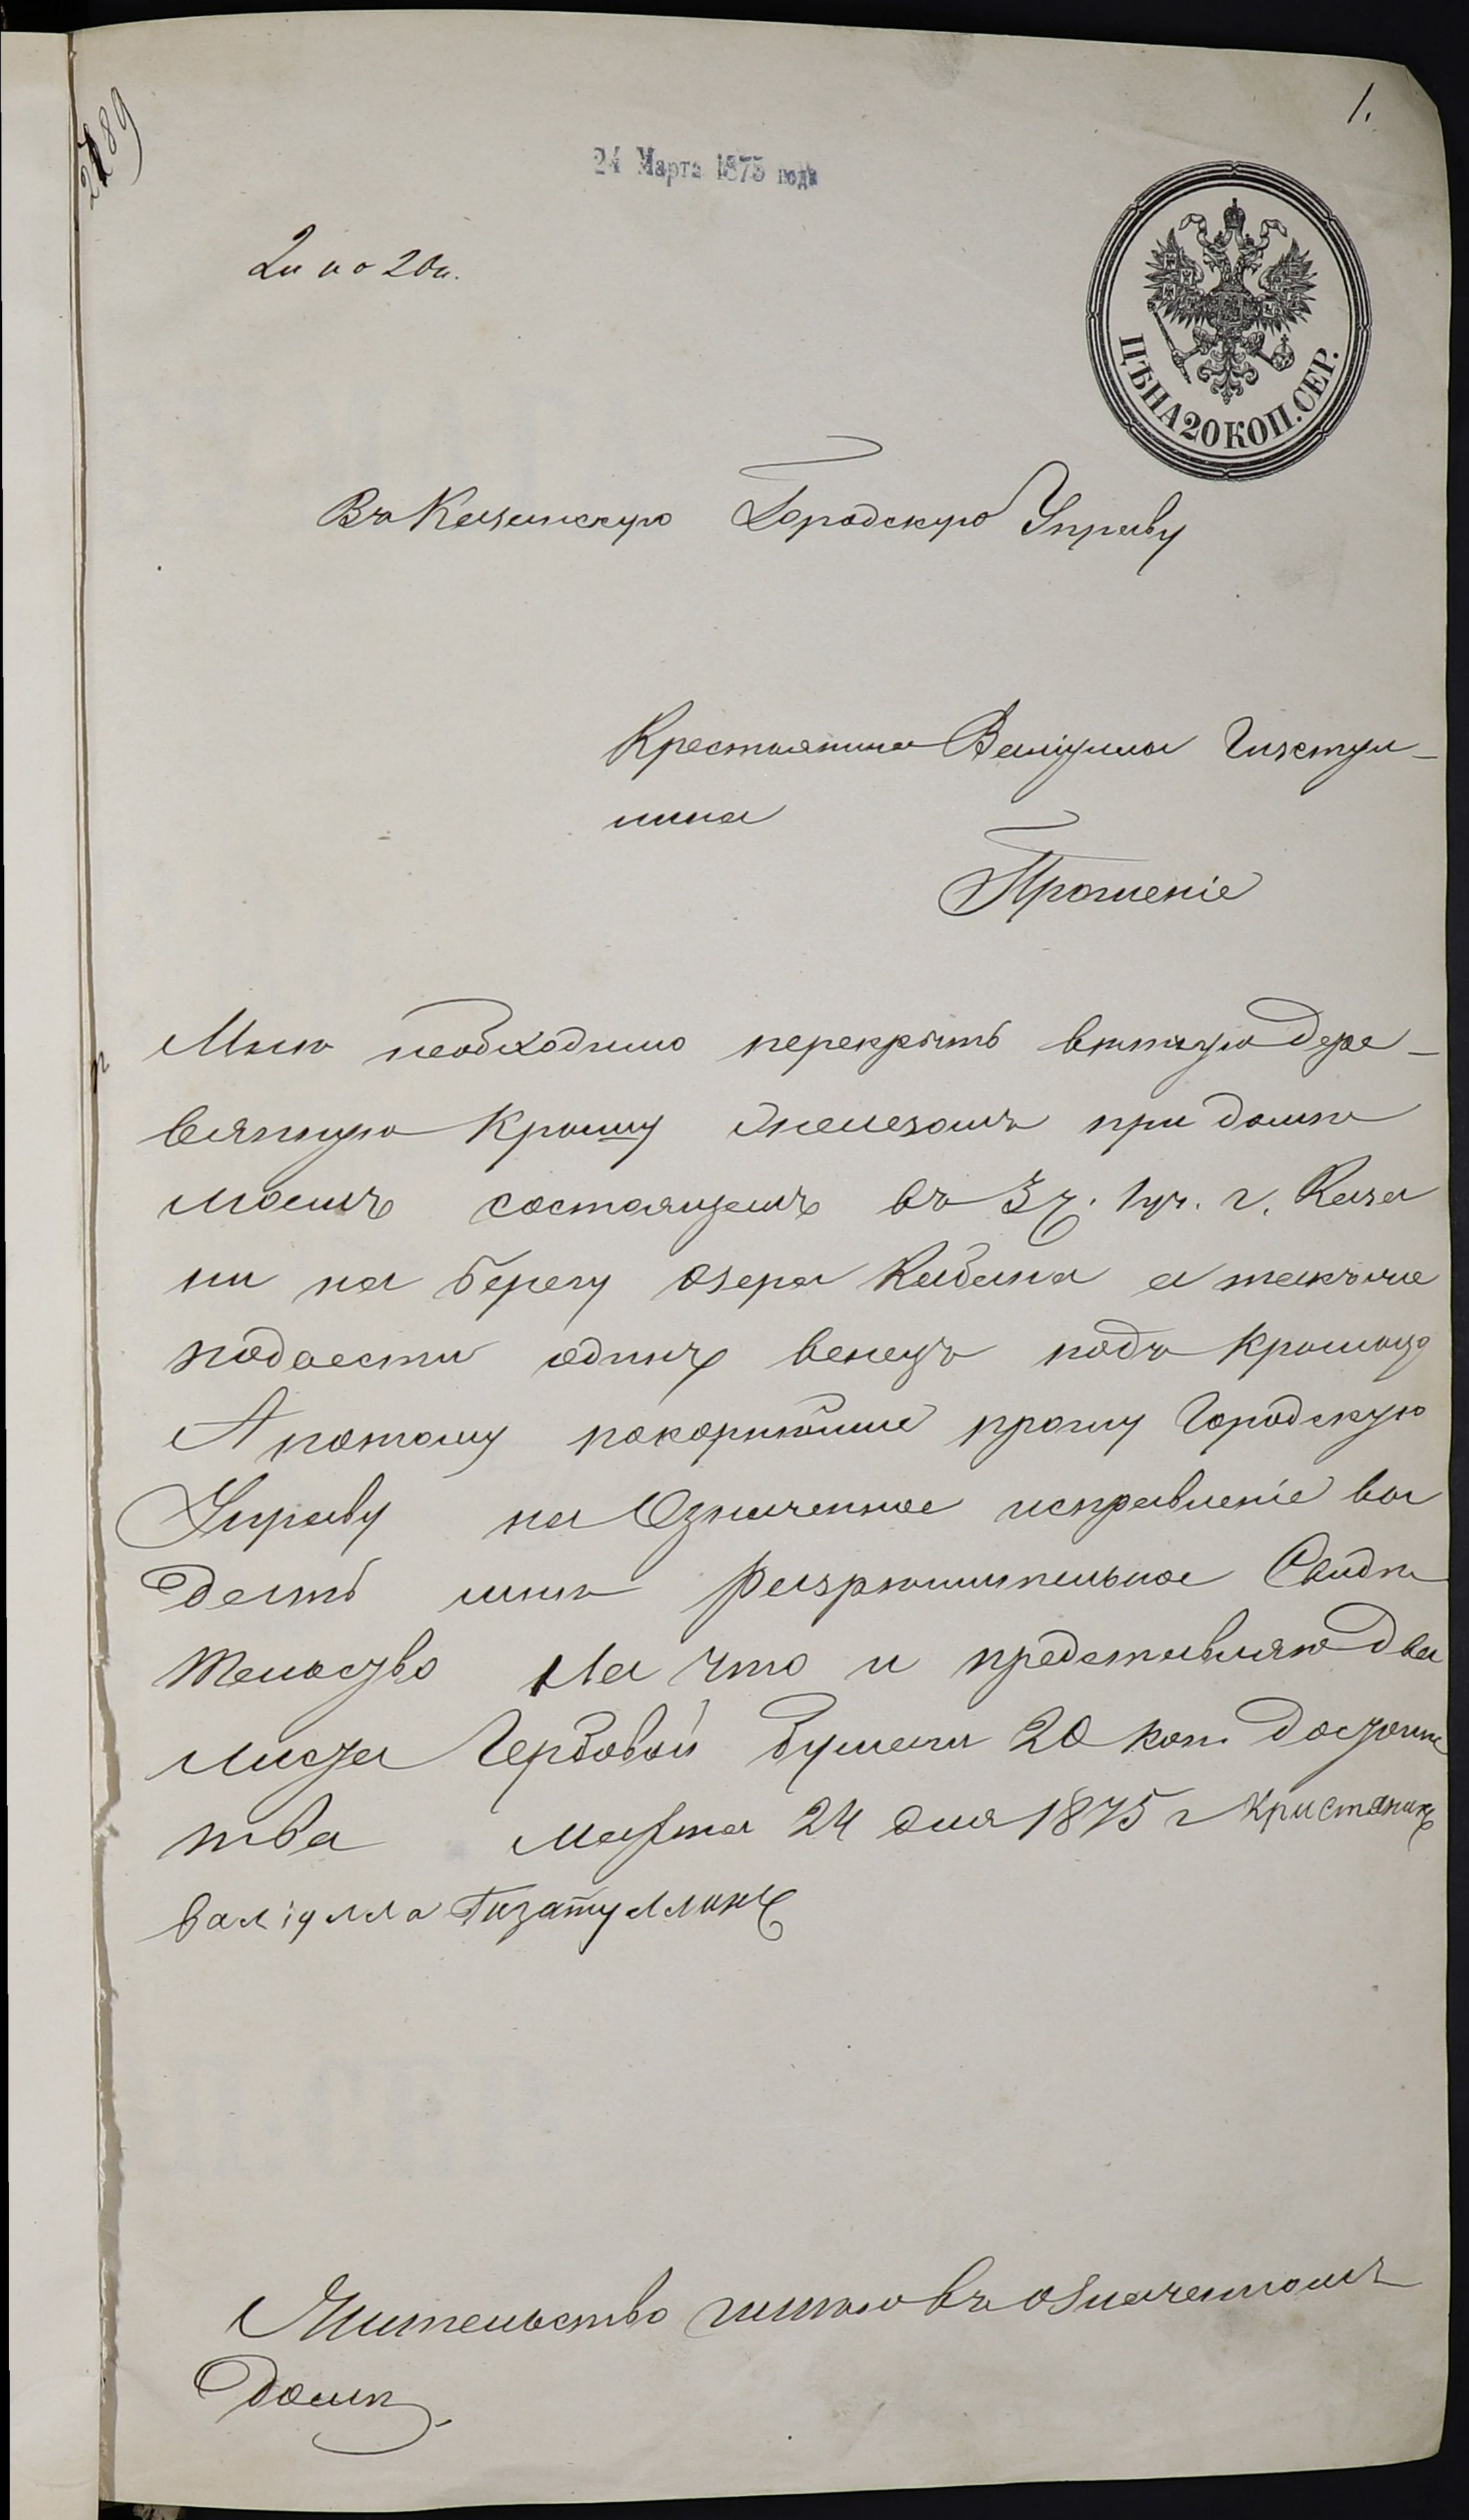 1.
2189
24 Марта 1875 года
2 л по 20 к.
ЦѢНА 20 КОП. СЕР.
Въ Казанскую Городскую Управу
Крестьянина Валіуллы Гизатул-
лина
Прошеніе
Мнѣ необходимо перекрыть ветхую дере-
вянную крышу железомъ при домѣ
моемъ состоящемъ въ 3 ч. 1 уч. г. Каза
ни на берегу озера Кабана а также
подвести одинъ венецъ подъ крышу
А потому покорнѣйше прошу Городскую
Управу на Означенное исправленіе вы
дать мнѣ разрѣшительное Свидѣ
тельство На что и представляю два
листа Гербовой бумаги 20 коп. достоинс
тва Марта 24 дня 1875 г Кристянинъ
валіулла Гизатуллинъ
Жительство имѣю въ означенномъ
домѣ